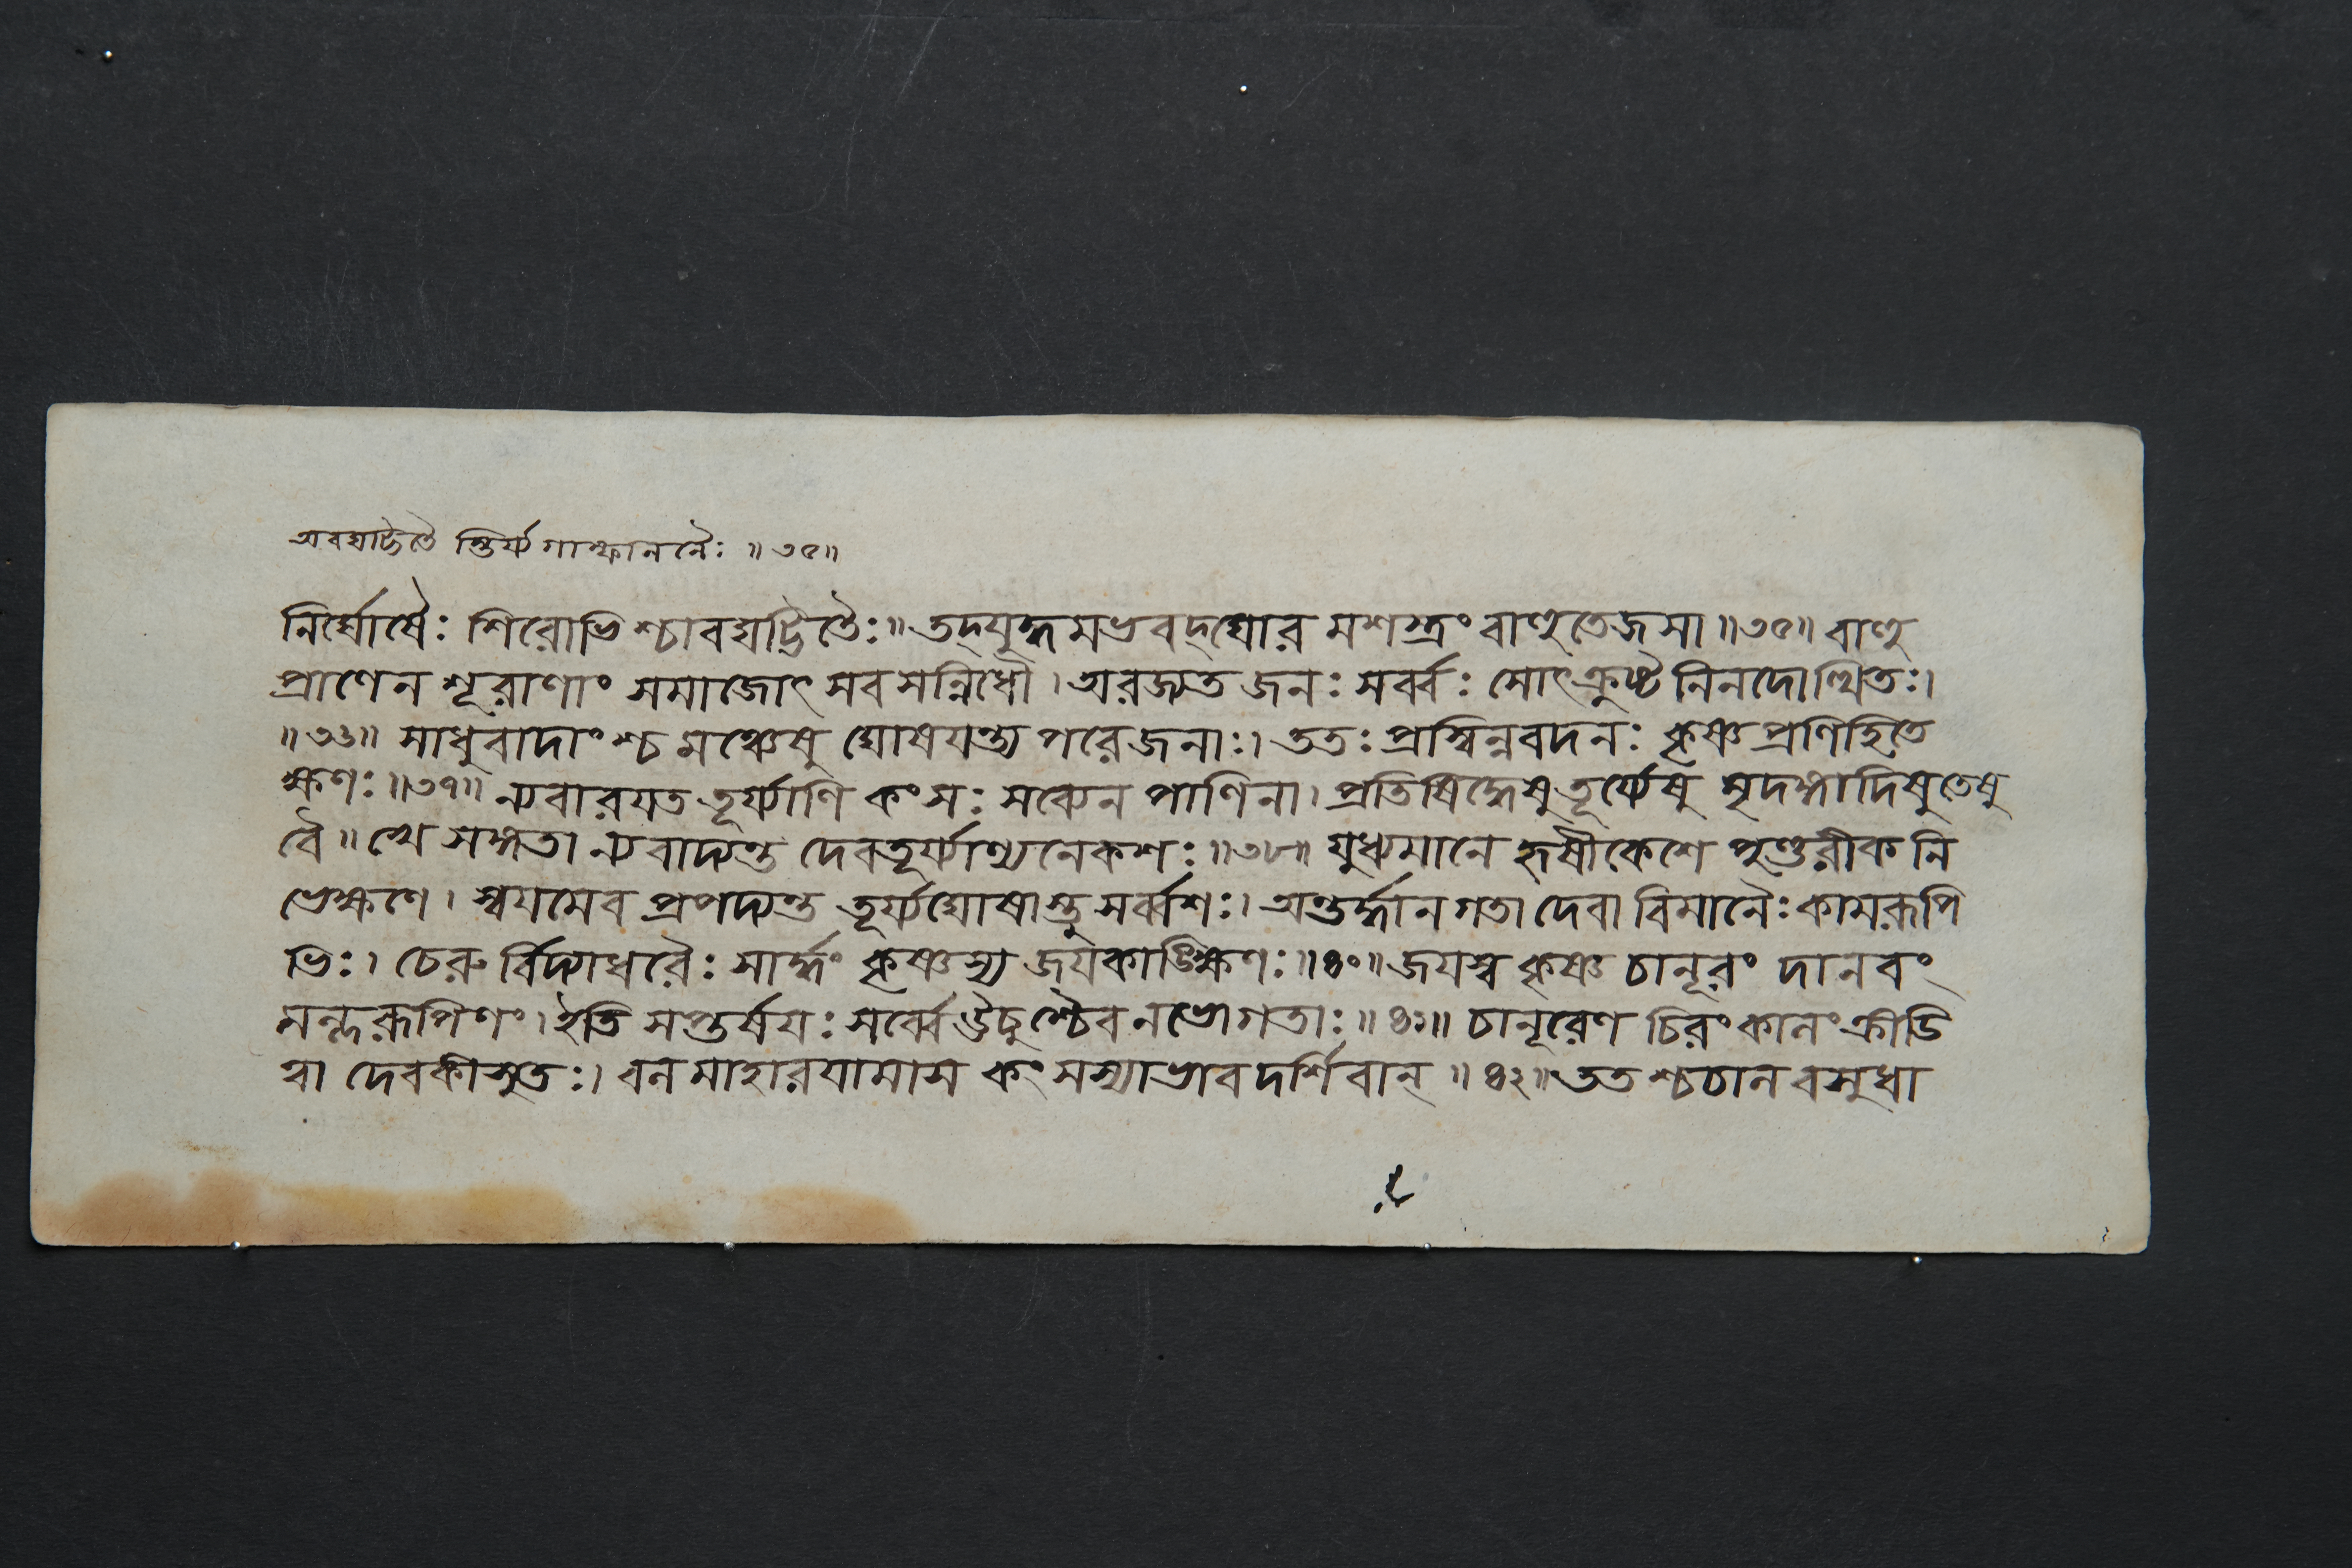 অবঘট্টিতৈ স্তির্য্যগান্ফাননৈঃ ॥৩৫॥
নির্ঘোষৈঃ শিরোভি শ্চাবঘট্টিতৈঃ॥ তদ্যুদ্ধমভবদ্ঘোর মশস্ত্রং বাহুতেজসা ॥৩৫॥ বাহু
প্রাণেন শূরাণাং সমাজোৎ সবসন্নিধৌ। অরজ্যত জনঃ সর্ব্বঃ সোৎক্রুষ্ট নিনদোত্থিতঃ।
॥৩৬॥ সাধুবাদাংশ্চ মঞ্চেষু ঘোষযন্ত্য পরেজনাঃ। ততঃ প্রস্বিন্নবদনঃ কৃষ্ণ প্রণিহিতে
ক্ষণঃ॥৩৭॥ ন্যবারযত তূর্য্যাণি কংসঃ সব্যেন পাণিনা। প্রতিষিদ্ধেষু তূর্য্যেষু মৃদঙ্গাদিষু তেষু
বৈ॥ খে সঙ্গতা ন্যবাদ্যন্ত দেবতূর্য্যাণ্যনেকশঃ॥৩৮॥ যুধ্যমানে হৃষীকেশে পুণ্ডরীক নি
ভেক্ষণে। স্বযমেব প্রপদ্যন্ত তূর্য্যঘোষাস্তু সর্ব্বশঃ। অন্তর্দ্ধান গতা দেবা বিমানৈঃ কামরূপি
ভিঃ। চেরু র্বিদ্যাধরৈঃ সার্দ্ধং কৃষ্ণস্য জযকাঙ্ক্ষিণঃ॥৪০॥ জযস্ব কৃষ্ণ চানূরং দানবং
মল্লরূপিণং। ইতি সপ্তর্ষযঃ সর্ব্বে ঊচুশ্চৈব নভোগতাঃ॥৪১॥ চানূরেণ চিরং কালং ক্রীডি
ত্বা দেবকীসুতঃ। বলমাহারযামাস কংসস্যাভাবদর্শিবান্ ॥৪২॥ ততশ্চচাল বসুধা